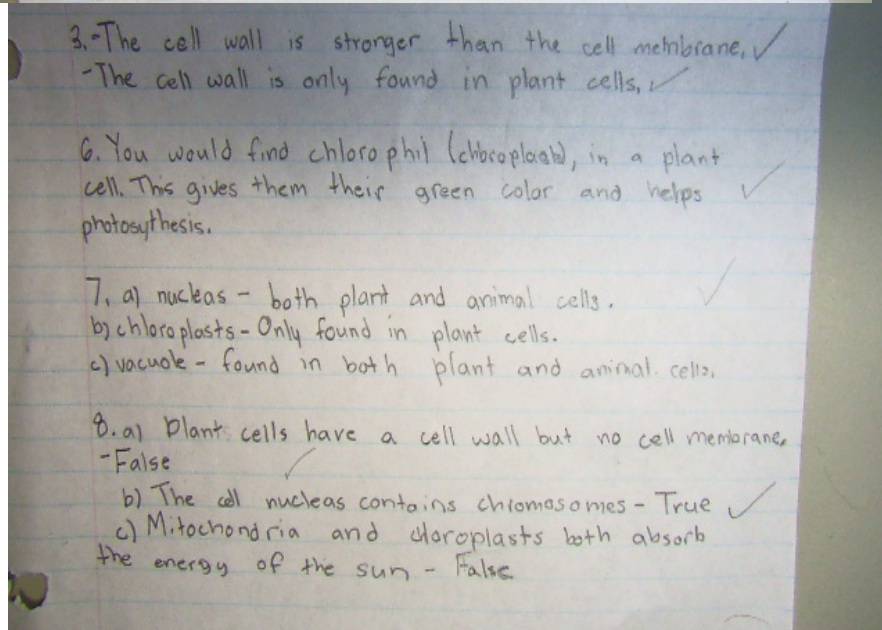 3.-The cell wall is stronger than the cell membrane.
-The cell wall is only found in plant cells.
6. You would find chlorophil (chloroplasts), in a plant
cell. This gives them their green color and helps
photosythesis.
7. a) nucleas - both plant and animal cells.
b) chloroplasts - Only found in plant cells.
c) vacuole - found in both plant and animal cells.
8. a) Plant cells have a cell wall but no cell membrane.
-False
b) The cell nucleas contains chromosomes - True
c) Mitochondria and chloroplasts both absorb
the energy of the sun - False